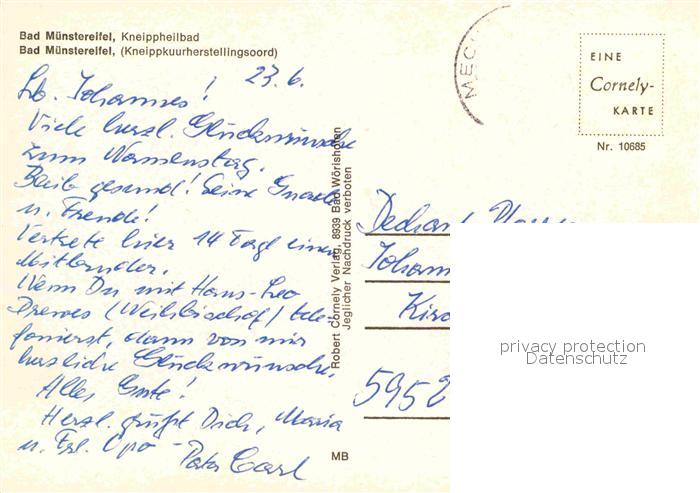 Bad Münstereifel, Kneippheilbad
Bad Münstereifel, (Kneippkuurherstellingsoord)
23.6.
Lb. Johannes!
Viele herzl. Glückwünsche
zum Namenstag.
Bleib gesund! Seine Gnade
u. Freude!
Vertrete hier 14 Tage einen
Mitbruder.
Wenn Du mit Hans-Leo
Drewes (Weihbischof) tele-
fonierst, dann von mir
herzliche Glückwünsche.
Alles Gute!
Herzl. grüßt Dich, Maria
u. Frl.
Pater Carl
Robert Cornely Verlag, 8939 Bad Wörishofen
Jeglicher Nachdruck verboten
MB
MEC
EINE
Cornely-
KARTE
Nr. 10685
Dechant
Johann
Kirc
5952
privacy protection
Datenschutz